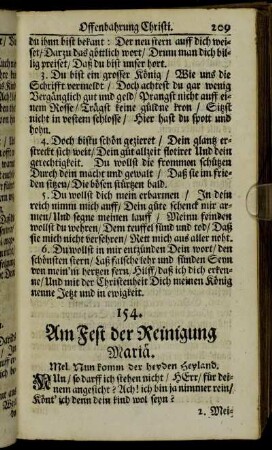 Offenbahrung Christi. 209
du ihnn bist bekant: Der neu stern auff dich wei-
set/ Darzu das göttlich wort/ Drum man dich bil-
lig preiset/ Daß du bist unser hort.
3. Du bist ein grosser König/ Wie uns die
Schrifft vermeldt/ Doch achtest du gar wenig
Vergänglich gut und geld/ Prangst nicht auff ei-
nem Rosse/ Trägst keine güldne kron/ Sitzst
nicht in vestem schlosse/ Hier hast du spott und
hohn.
4. Doch bistu schön gezieret/ Dein glantz er-
streckt sich weit/ Dein güt allzeit floriert Und dein
gerechtigkeit. Du wollst die frommen schützen
Durch dein macht und gewalt/ Daß sie im frie-
den sitzen/ Die bösen stürtzen bald.
5. Du wollst dich mein erbarmen/ In dein
reich nimm mich auff/ Dein güte schenck mir ar-
men/ Und segne meinen lauff/ Meinn feinden
wollst du wehren/ Dem teuffel sünd und tod/ Daß
sie mich nicht versehren/ Rett mich aus aller noht.
6. Du wollst in mir entzünden Dein wort/ den
schönsten stern/ Laß falsche lehr und sünden Seyn
von mein'm hertzen fern. Hilff/ daß ich dich erken-
ne/ Und mit der Christenheit Dich meinen König
nenne Jetzt und in ewigkeit.
154.
Am Fest der Reinigung
Mariä.
Mel. Nun komm der heyden Heyland.
NUn/ so darff ich stehen nicht/ HErr/ für dei-
nem angesicht? Ach! ich bin ja nimmer rein/
Könt' ich denn dein kind wol seyn?
2. Mei-